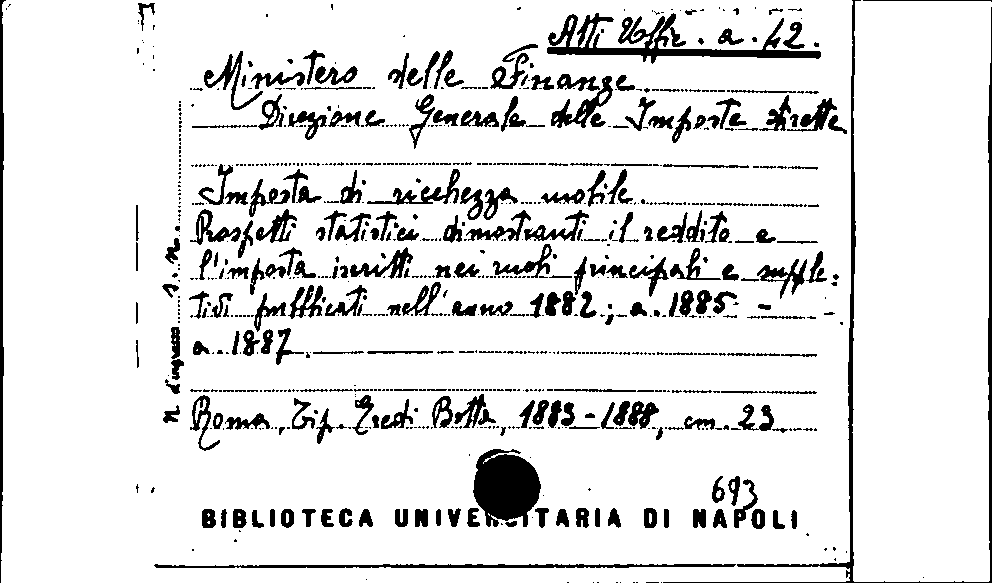 Atti Uffic. a. 42.
Ministero delle Finanze.
Direzione Generale delle Imposte dirette
Imposta di ricchezza mobile.
Prospetti statistici dimostranti il reddito e
l'imposta iscritti nei ruoli principali e supple:
tivi pubblicati nell'anno 1882; a. 1885 -
a. 1887.
Roma, Tip. Eredi Botta, 1883-1888, cm. 23.
N. d'ingresso s. n.
693
BIBLIOTECA UNIVERSITARIA DI NAPOLI